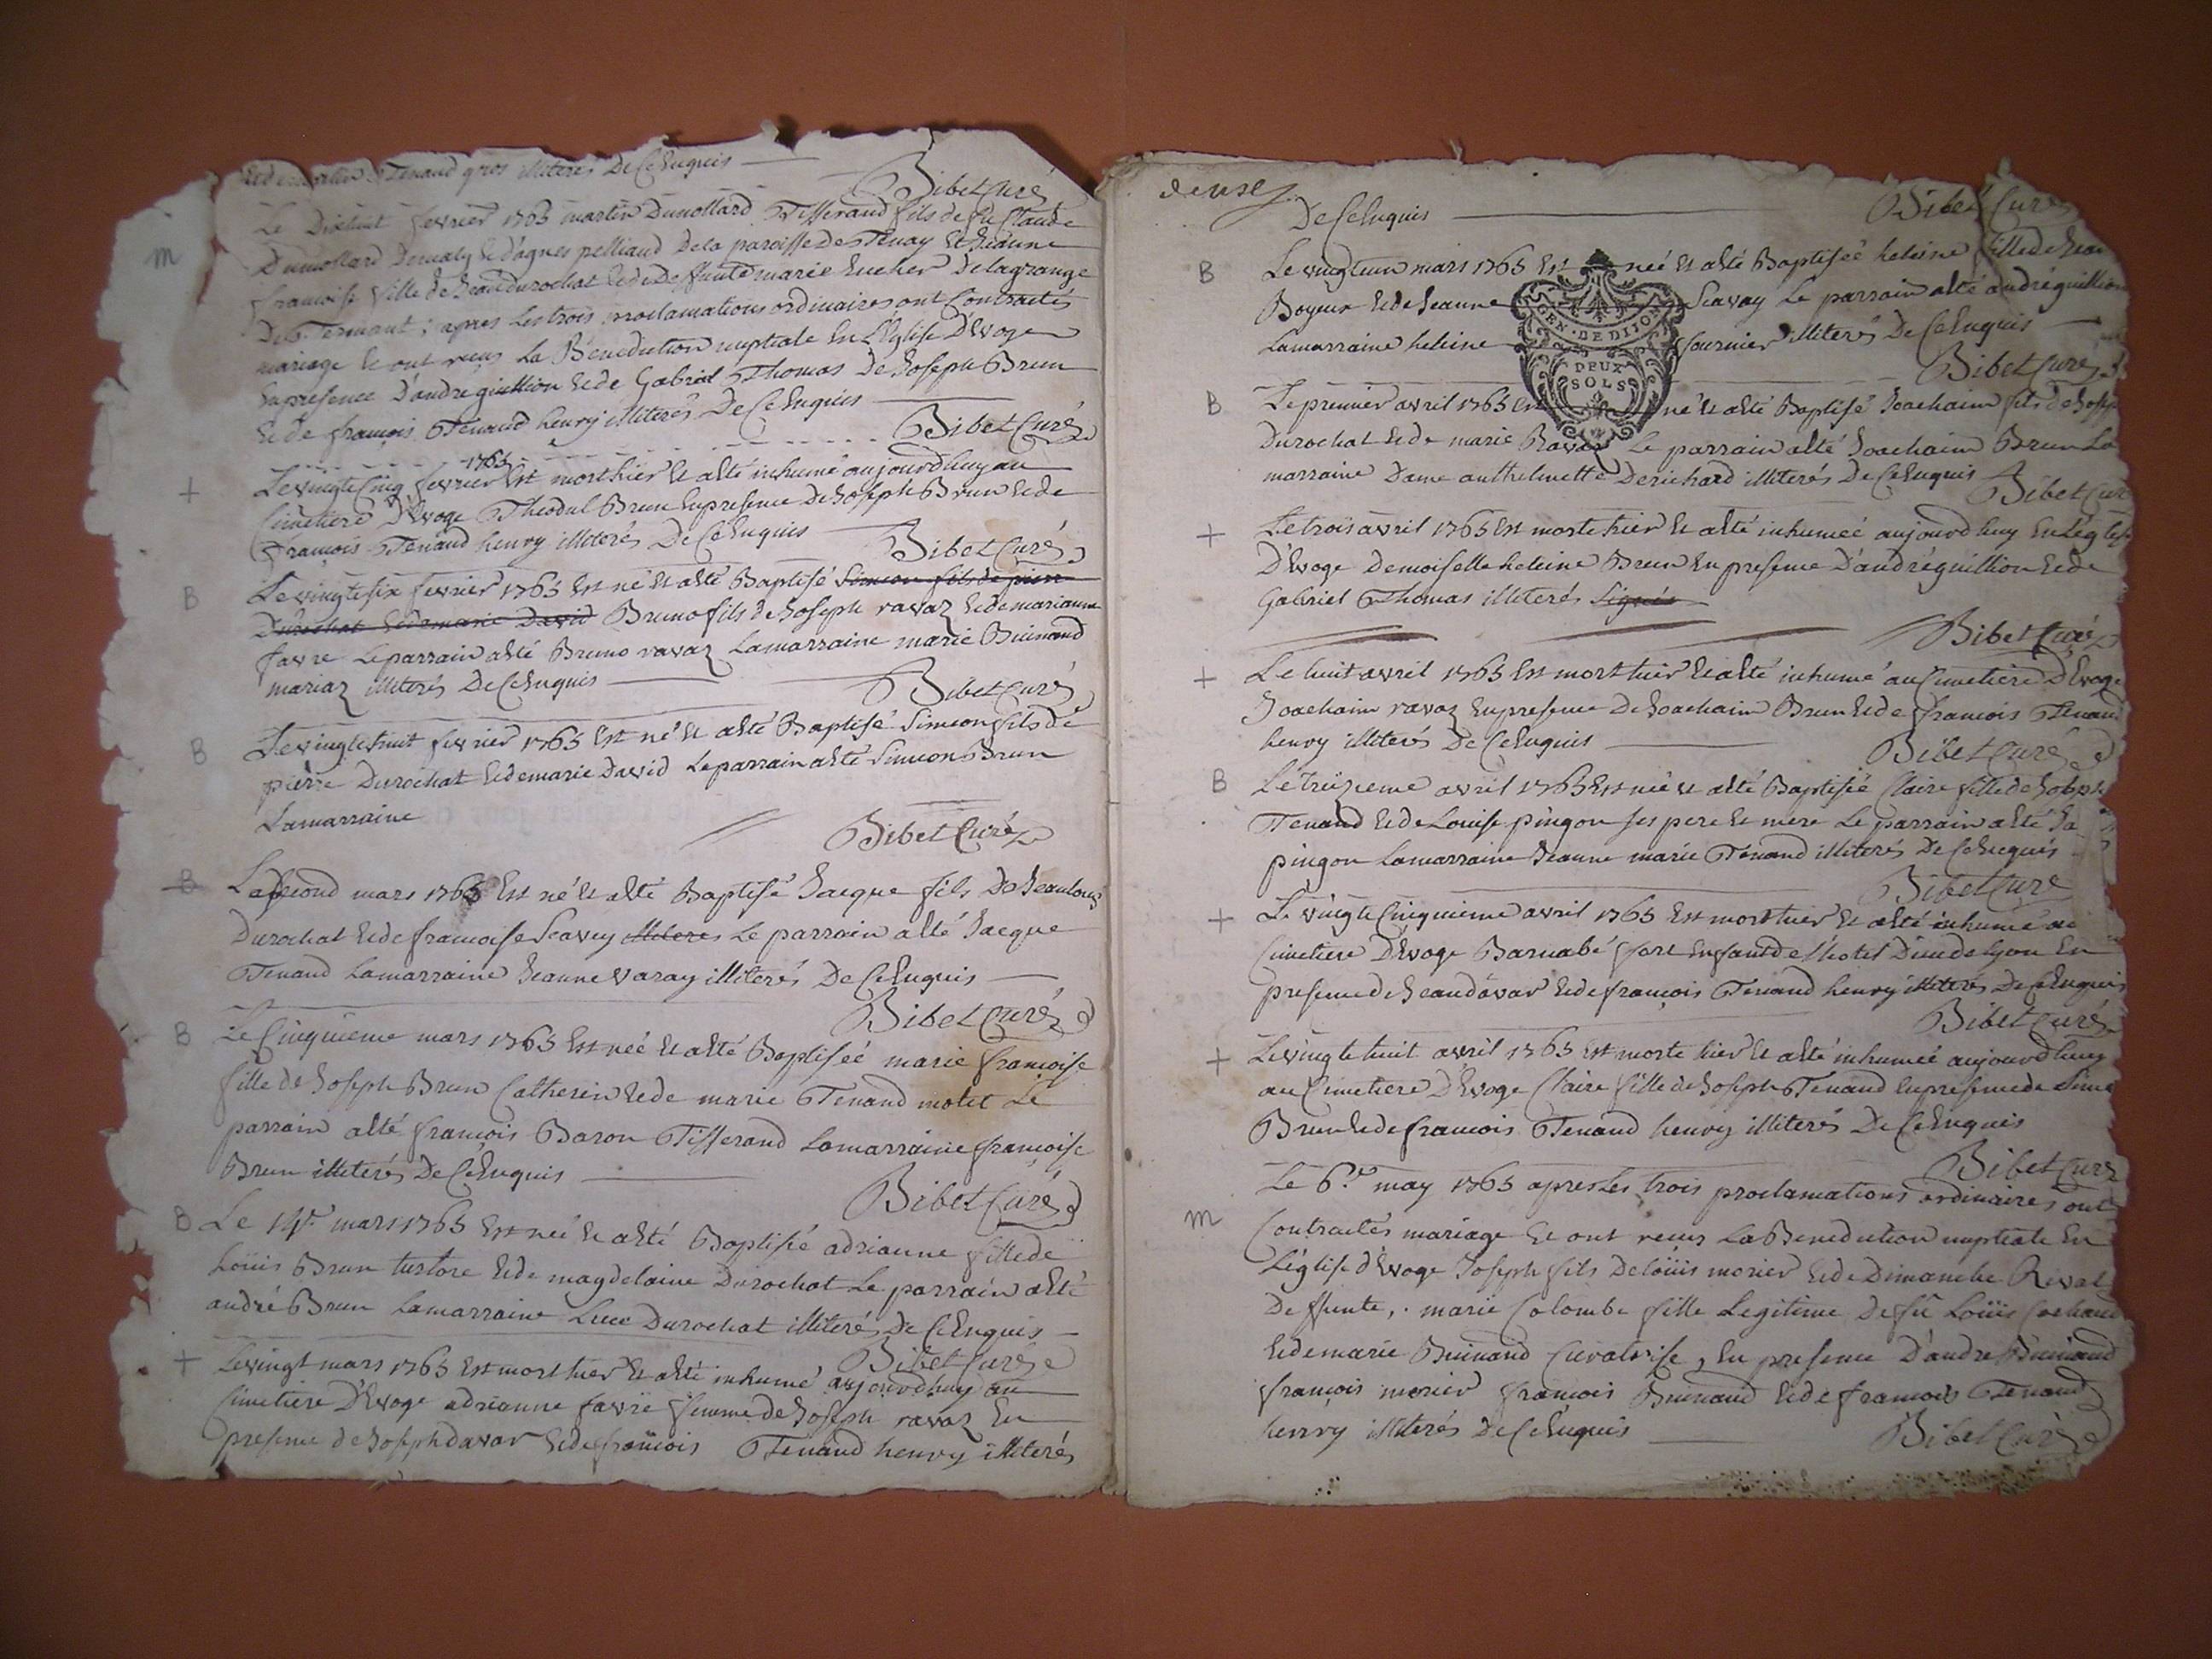 Tenand gros illiterés De Ce Enquis
Bibet Curé
m
Le Dixhuit fevrier 1765 martin Dumollard Tisserand fils de fû Claude
Dumollard Demaly Et d'agnes pelliand De la paroisse De Tenay Et Jeanne
francoise fille de Jean Durochat Et de Deffunte marie Lucher De la grange
De Termant ; apres Les trois proclamations ordinaires ont Contractés
mariage Et ont reçus La Benediction nuptiale En L'Eglise D'Evoge
En presence D'andre guillion Et de Gabriel Thomas De Joseph Brun
Et de françois Tenand henry illiterés De Ce Enquis
Bibet Curé
1765
+ Le vingt Cinq fevrier Est mort hier Et a Eté inhumé aujourdhuy au
Cimetiere D'Evoge Theodul Brun En presence De Joseph Brun Et de
françois Tenand henry illiterés De Ce Enquis
Bibet Curé
B Le vingt Six fevrier 1765 Est né Et a Eté Baptisé Simeon fils de pierre
Durochat Et de marie David Bruno fils de Joseph ravaz Et de marianne
favre Le parrain a Eté Bruno ravaz La marraine marie Buinand
mariaz illiterés De Ce Enquis
Bibet Curé
B Le vingt huit fevrier 1765 Est né Et a Eté Baptisé Simeon fils de
pierre Durochat Et de marie David Le parrain a Eté Simeon Brun
La marraine
Bibet Curé
B Le second mars 1765 Est né Et a Eté Baptisé Jacque fils De Jean Louis
Durochat Et de francoise Scavey illiteres Le parrain a Eté Jacque
Tenand La marraine Jeanne Varay illiterés De Ce Enquis
Bibet Curé
B Le Cinquieme mars 1765 Est neé Et a Eté Baptiseé marie francoise
fille de Joseph Brun Catherin Et de marie Tenand molet Le
parrain a Eté françois Baron Tisserand La marraine francoise
Brun illiterés De Ce Enquis
Bibet Curé
B Le 14e mars 1765 Est neé Et a Eté Baptisée adrianne fille de
Loüis Brun turtore Et de magdelaine Durochat Le parrain a Eté
andré Brun La marraine Luce Durochat illiterés De Ce Enquis
Bibet Curé
+ Le vingt mars 1765 Est mort hier Et a Eté inhumé aujourdhuy au
Cimetiere D'Evoge adrianne favre femme de Joseph ravaz En
presence de Joseph davar Et de françois Tenand henry illiterés
deuse
De Ce Enquis
Bibet Curé
B Le vingt un mars 1765 Est neé Et a Eté Baptiseé heleine fille de Jean
Boyeux Et de Jeanne Scavay Le parrain a Eté andré guillion
La marraine heleine fournier illiterés De Ce Enquis
GEN. DE DIJON
DEUX
SOLS
Bibet Curé
B Le premier avril 1765 Est né Et a Eté Baptisé Joachaim fils de Josep
Durochat Et de marie Ravaz Le parrain a Eté Joachaim Brun La
marraine Dame anthelmette Derichard illiterés De Ce Enquis
Bibet Cur
+ Le trois avril 1765 Est morte hier Et a Eté inhumeé aujourdhuy En L'Eglise
D'Evoge Demoiselle heleine Brun En presence D'andré guillion Et de
Gabriel Thomas illiterés Signés
Bibet Curé
+ Le huit avril 1765 Est mort hier Et a Eté inhumé au Cimetiere D'Evoge
Joachaim ravaz En presence De Joachaim Brun Et de françois Tenand
henry illiterés De Ce Enquis
Bibet Curé
B Le treizieme avril 1765 Est neé Et a Eté Baptiseé Claire fille de Joseph
Tenand Et de Louise pingon ses pere Et mere Le parrain a Eté Ja
pingon La marraine Jeanne marie Tenand illiterés De Ce Enquis
Bibet Curé
+ Le vingt Cinquieme avril 1765 Est mort hier Et a Eté inhumé au
Cimetiere D'Evoge Barnabé fort Enfant de L'hotel Dieu de Lyon En
presence de Jean davar Et de françois Tenand henry illiterés De Ce Enquis
Bibet Curé
+ Le vingt huit avril 1765 Est morte hier Et a Eté inhumeé aujourdhuy
au Cimetiere D'Evoge Claire fille de Joseph Tenand En presence de Sime
Brun Et de francois Tenand henry illiterés De Ce Enquis
Bibet Curé
m
Le 6e may 1765 apres Les trois proclamations ordinaires ont
Contractés mariage Et ont reçus La Benediction nuptiale En
L'église d'Evoge Joseph fils De Loüis morier Et de Dimanche Rival
Deffunte, marie Colombe fille Legitime De fû Loüis Cochand
Et de marie Buinand Curatrise, En presence D'andre Buinand
françois morier francois Buinand Et de francois Tenand
henry illiterés De Ce Enquis
Bibet Curé